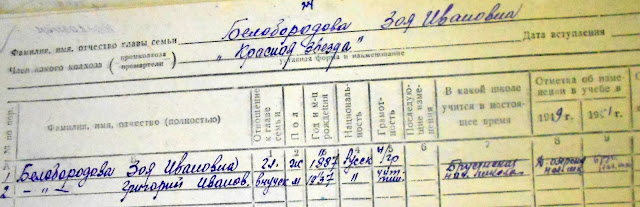 Белобородова Зоя Ивановна
Фамилия, имя, отчество главы семьи
"Красная Звезда" Дата вступления
Член какого колхоза (промколхоза промартели) уставная форма и наименование
№№ по пор. Фамилия, имя, отчество (полностью) Отношение к главе семьи Пол Год и м-ц рождения Националь-ность Грамот-ность Последую-щие изме-нения В какой школе учится в настоя-щее время Отметка об изме-нении в учебе в
1949 г. 1951 г.
6 7 8 9
1 Белобородова Зоя Ивановна гл. ж 1887 Русск
2 –„– Григорий Иванов. внучек м 1937 "